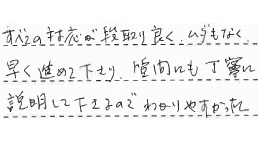 すべての対応が段取り良く、ムダもなく、
早く進めて下さり、質問にも丁寧に
説明して下さるので わかりやすかった